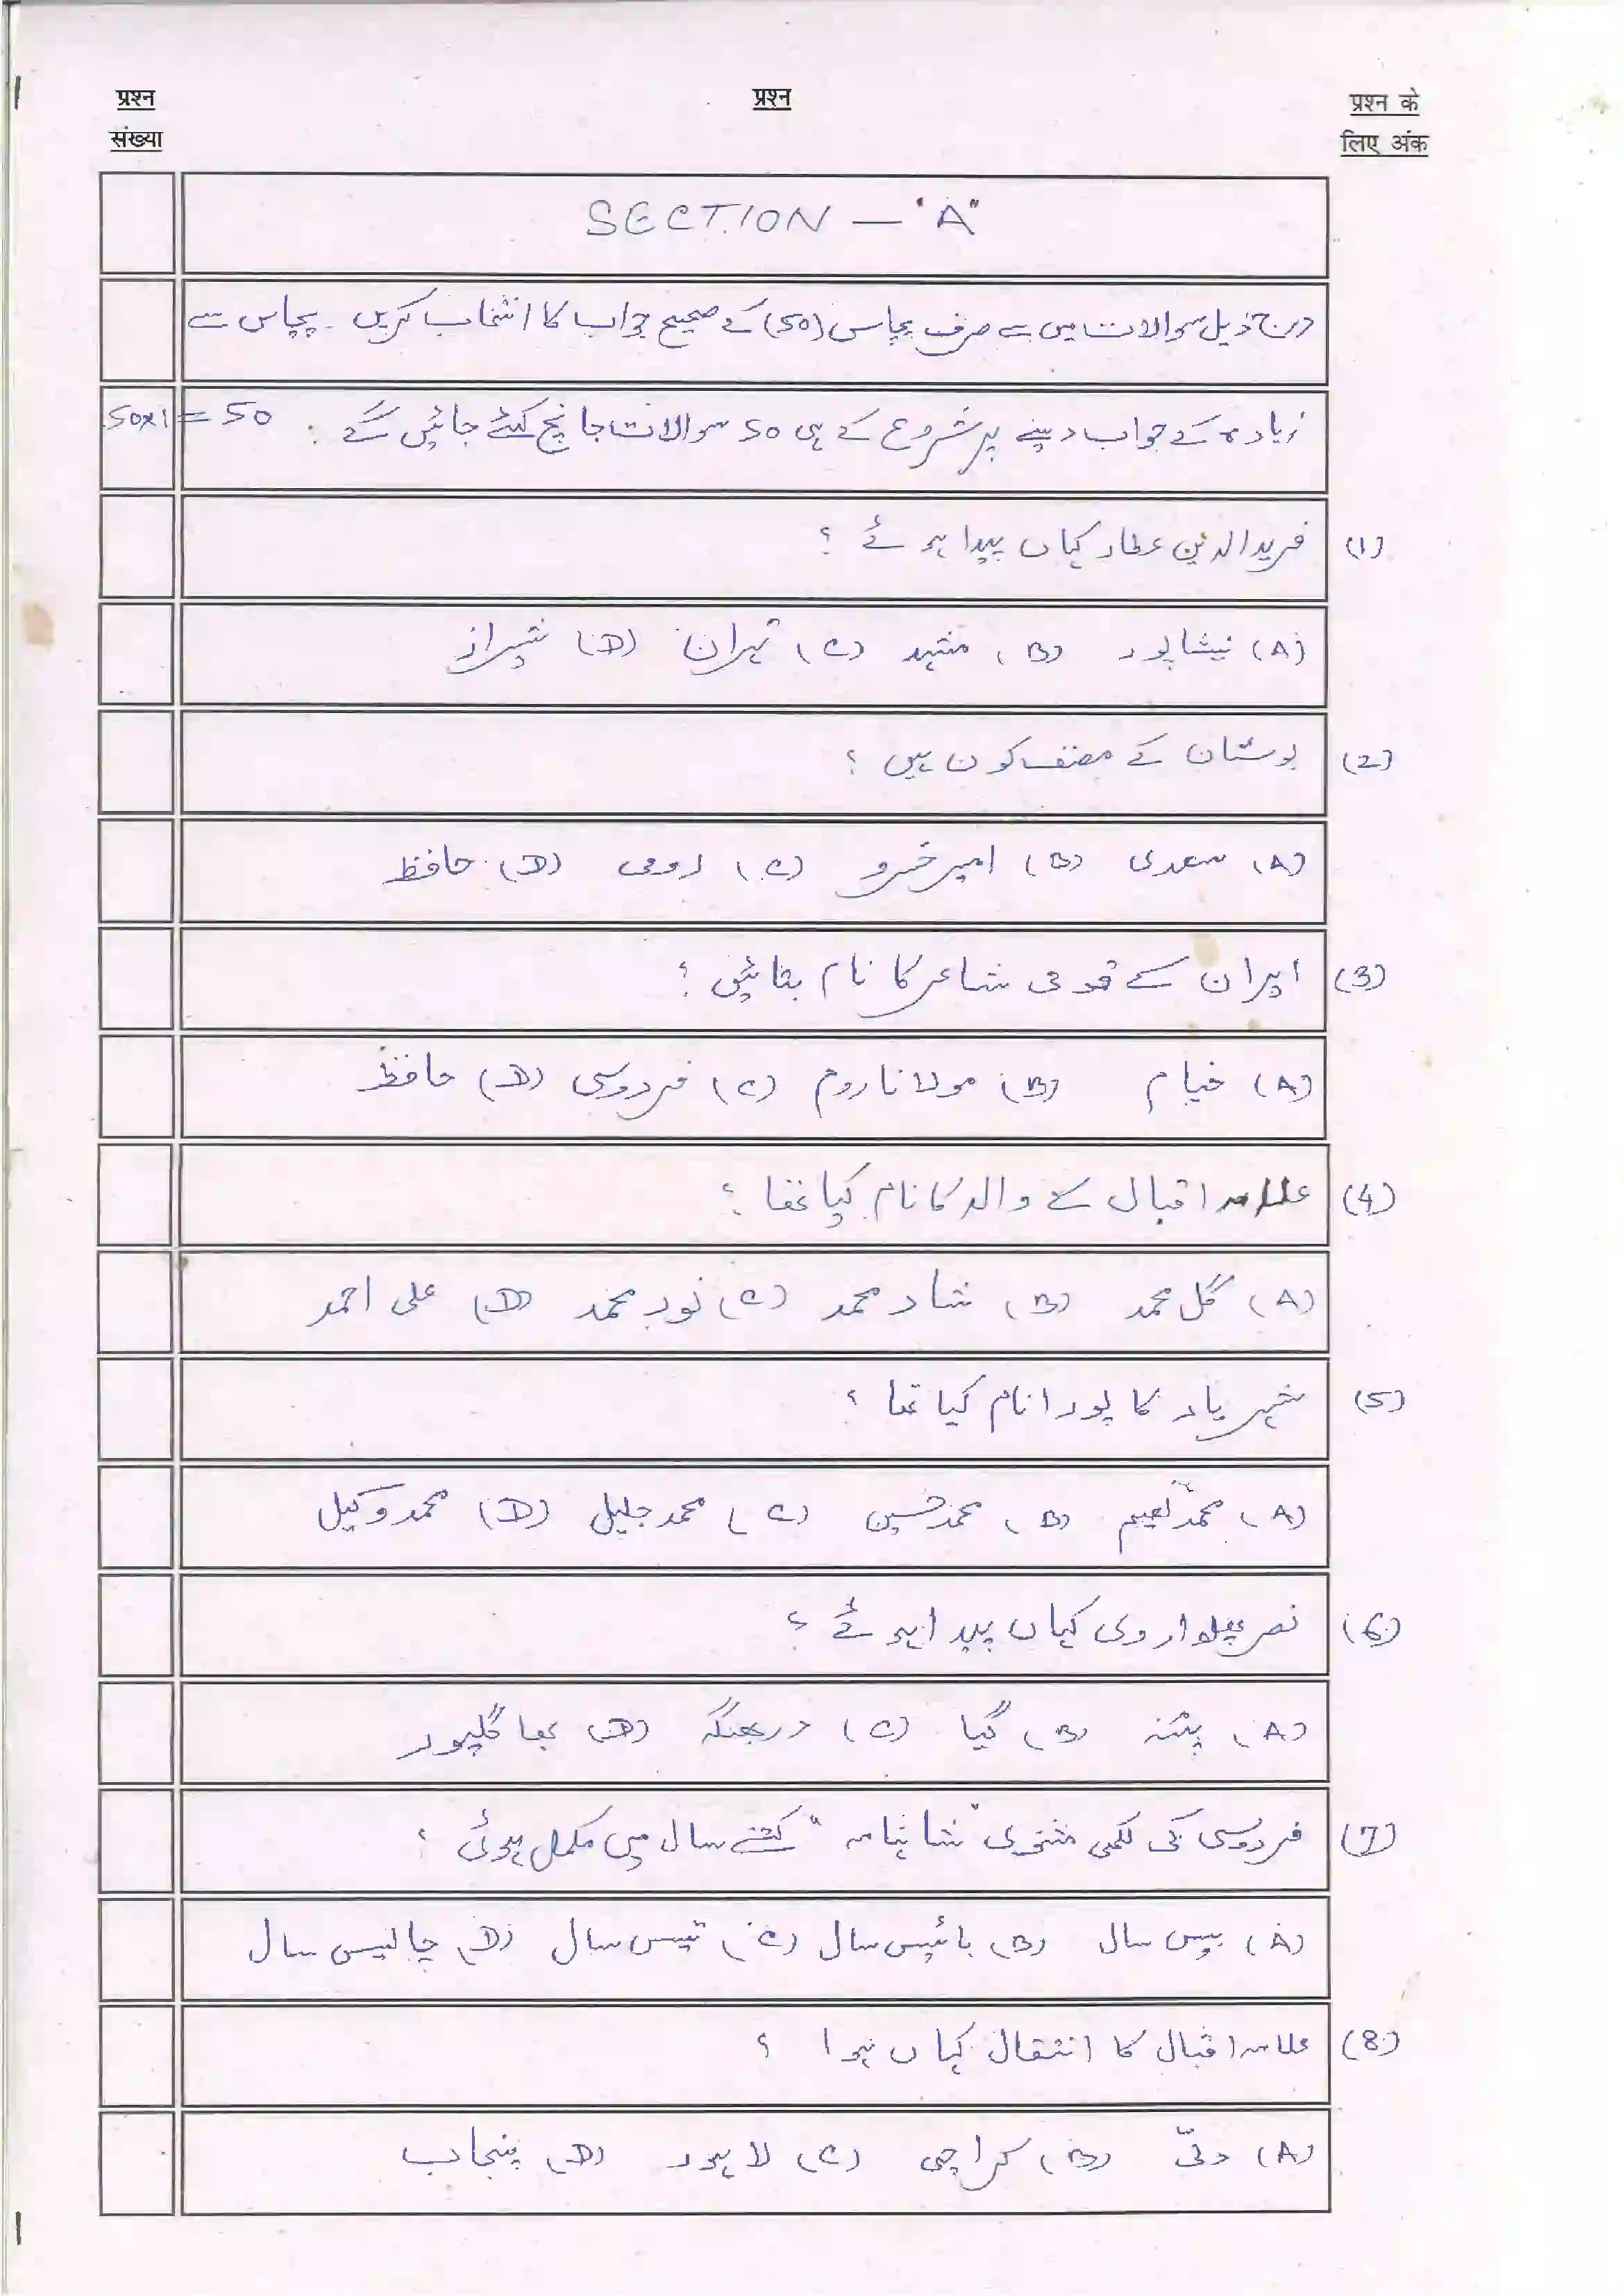 प्रश्न संख्या
प्रश्न
प्रश्न के लिए अंक
SECTION – "A"
درج ذیل سوالات میں سے صرف پچاس (50) کے صحیح جواب کا انتخاب کریں۔ پچاس سے
زیادہ کے جواب دینے پر شروع کے ہی 50 سوالات جانچ کئے جائیں گے۔ 50x1=50
(1) فریدالدین عطار کہاں پیدا ہوئے ؟
(A) نیشاپور (B) مشہد (C) تہران (D) شیراز
(2) بوستان کے مصنف کون ہیں ؟
(A) سعدی (B) امیر خسرو (C) رومی (D) حافظ
(3) ایران کے قومی شاعر کا نام بتائیں ؟
(A) خیام (B) مولانا روم (C) فردوسی (D) حافظ
(4) علامہ اقبال کے والد کا نام کیا تھا ؟
(A) گل محمد (B) شاد محمد (C) نور محمد (D) علی احمد
(5) شہریار کا پورا نام کیا تھا ؟
(A) محمد نعیم (B) محمد حسین (C) محمد جلیل (D) محمد وکیل
(6) نصر پھلواروی کہاں پیدا ہوئے ؟
(A) پٹنہ (B) گیا (C) دربھنگہ (D) بھاگلپور
(7) فردوسی کی لکھی مثنوی "شاہنامہ" کتنے سال میں مکمل ہوئی ؟
(A) بیس سال (B) بائیس سال (C) تیس سال (D) چالیس سال
(8) علامہ اقبال کا انتقال کہاں ہوا ؟
(A) دلّی (B) کراچی (C) لاہور (D) پنجاب